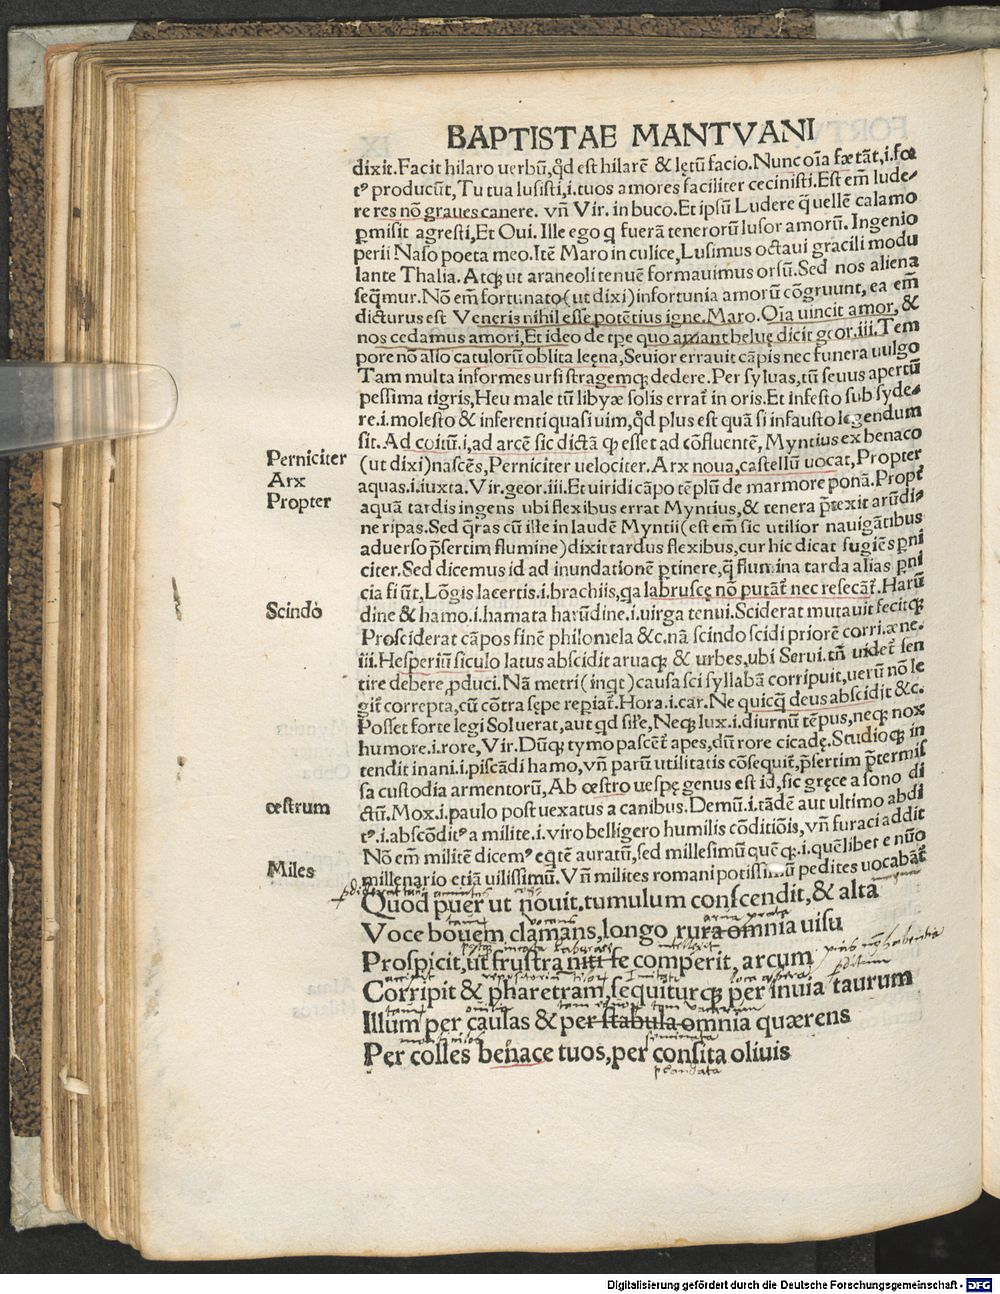 BAPTISTAE MANTVANI
dixit. Facit hilaro uerbū, qd̄ est hilarē & lętū facio. Nunc oīa fætāt, .i. foe
tꝰ producūt, Tu tua lusisti, .i. tuos amores faciliter cecinisti. Est em̄ lude⸗
re res nō graues canere. vn̄ Vir. in buco. Et ipsū Ludere q̄ uellē calamo
ꝑmisit agresti, Et Oui. Ille ego q fuerā tenerorū lusor amorū. Ingenio
perii Naso poeta meo. Itē Maro in culice, Lusimus octaui gracili modu
lante Thalia. Atqꝫ ut araneoli tenuē formauimus orsū. Sed nos aliena
seqm̄ur. Nō em̄ fortunato (ut dixi) infortunia amorū cōgruunt, ea em̄
dicturus est Veneris nihil esse potētius igne. Maro. Oīa uincit amor, &
nos cedamus amori, Et ideo de tꝑe quo amant beluę dicit geor. iii. Tem
pore nō alio catulorū oblita leęna, Seuior errauit cāpis nec funera uulgo
Tam multa informes ursi stragemqꝫ dedere. Per syluas, tū seuus apertū
pessima tigris, Heu male tū libyæ solis errat̄ in oris. Et infesto sub syde⸗
re .i. molesto & inferenti quasi uim, qd̄ plus est quā si infausto legendum
sit. Ad coitū .i. ad arcē sic dictā ꝙ esset ad cōfluentē, Myntius ex benaco
Perniciter
(ut dixi) nascēs, Perniciter uelociter. Arx noua, castellū uocat, Propter
Arx
aquas .i. iuxta. Vir. geor. iii. Et uiridi cāpo tēplū de marmore ponā. Propt̄
Propter
aquā tardis ingens ubi flexibus errat Myntius, & tenera p̄texit arūdi⸗
ne ripas. Sed q̄ras cū ille in laudē Myntii (est em̄ sic utilior nauigātibus
aduerso p̄sertim flumine) dixit tardus flexibus, cur hic dicat fugiēs ꝑni
citer. Sed dicemus id ad inundationē ꝑtinere, q̄ flumina tarda alias ꝑni
cia fiūt, Lōgis lacertis .i. brachiis, qa labruscę nō putāt̄ nec resecāt̄. Harū
Scindo
dine & hamo .i. hamata harūdine .i. uirga tenui. Sciderat mutauit fecitqꝫ
Prosciderat cāpos finē philomela &c. nā scindo scidi priorē corri. æne.
iii. Hesperiū siculo latus abscidit aruaqꝫ & urbes, ubi Serui. tn̄ uidet̄ sen
tire debere ꝓduci. Nā metri (inqt) causa sci syllabā corripuit, uerū nō le
git̄ correpta, cū cōtra sępe reꝑiat̄. Hora. i. car. Ne quicq̄ deus abscidit &c.
Posset forte legi Soluerat, aut qd sil̄e, Neqꝫ lux .i. diurnū tēpus, neqꝫ nox
humore .i. rore, Vir. Dūqꝫ tymo pascēt̄ apes, dū rore cicadę. Studioqꝫ in
tendit inani .i. piscādi hamo, vn̄ parū utilitatis cōsequit̄, p̄sertim p̄termis
sa custodia armentorū, Ab œstro uespę genus est id, sic gręce a sono di
œstrum
ctū. Mox .i. paulo post uexatus a canibus. Demū .i. tādē aut ultimo abdi
tꝰ .i. abscōditꝰ a milite .i. viro belligero humilis cōditiōis, vn̄ furaci addit
Nō em̄ militē dicemꝰ eqtē auratū, sed millesimū quēqꝫ .i. quēlibet e nūo
Miles
millenario etiā uilissimū. Vn̄ milites romani potissimū pedites uocabāt̄
magna
Quod puer ut nouit. tumulum conscendit, & alta
tam̄ vocans arua prata
Voce bouem clamans, longo rura omnia uisu
intellexit
Prospicit, ut frustra niti se comperit, arcum
accipit
Corripit & pharetram, sequiturqꝫ per inuia taurum
Illum per caulas & per stabula omnia quærens
seminata
Per colles benace tuos, per consita oliuis
plantata
Digitalisierung gefördert durch die Deutsche Forschungsgemeinschaft - DFG